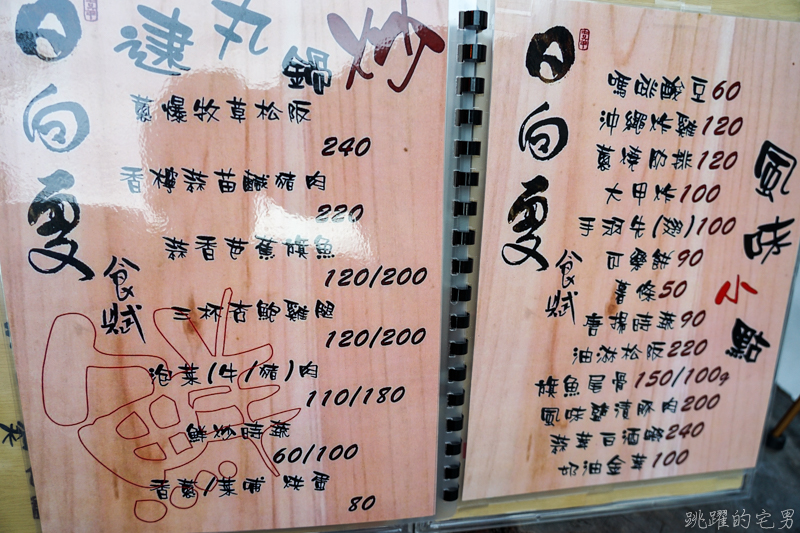 日向夏
食賦
逮丸
鍋炒
蔥爆牧草松阪
240
香檸蒜苗鹹豬肉
220
蒜香芭蕉旗魚
120/200
三杯杏鮑雞腿
120/200
泡菜(牛/豬)肉
110/180
鮮炒時蔬
60/100
香蔥/菜哺 烘蛋
80
日向夏
食賦
小
嗎哢酸豆60
沖繩炸雞120
蔥燒肋排120
大甲炸100
手沏牛(雞)100
可樂餅90
薯條50
唐揚時蔬90
油淋松阪220
旗魚尾骨150/100g
風味鹽漬豚肉200
蒜茸白酒蝦240
奶油金茸100
跳躍的宅男